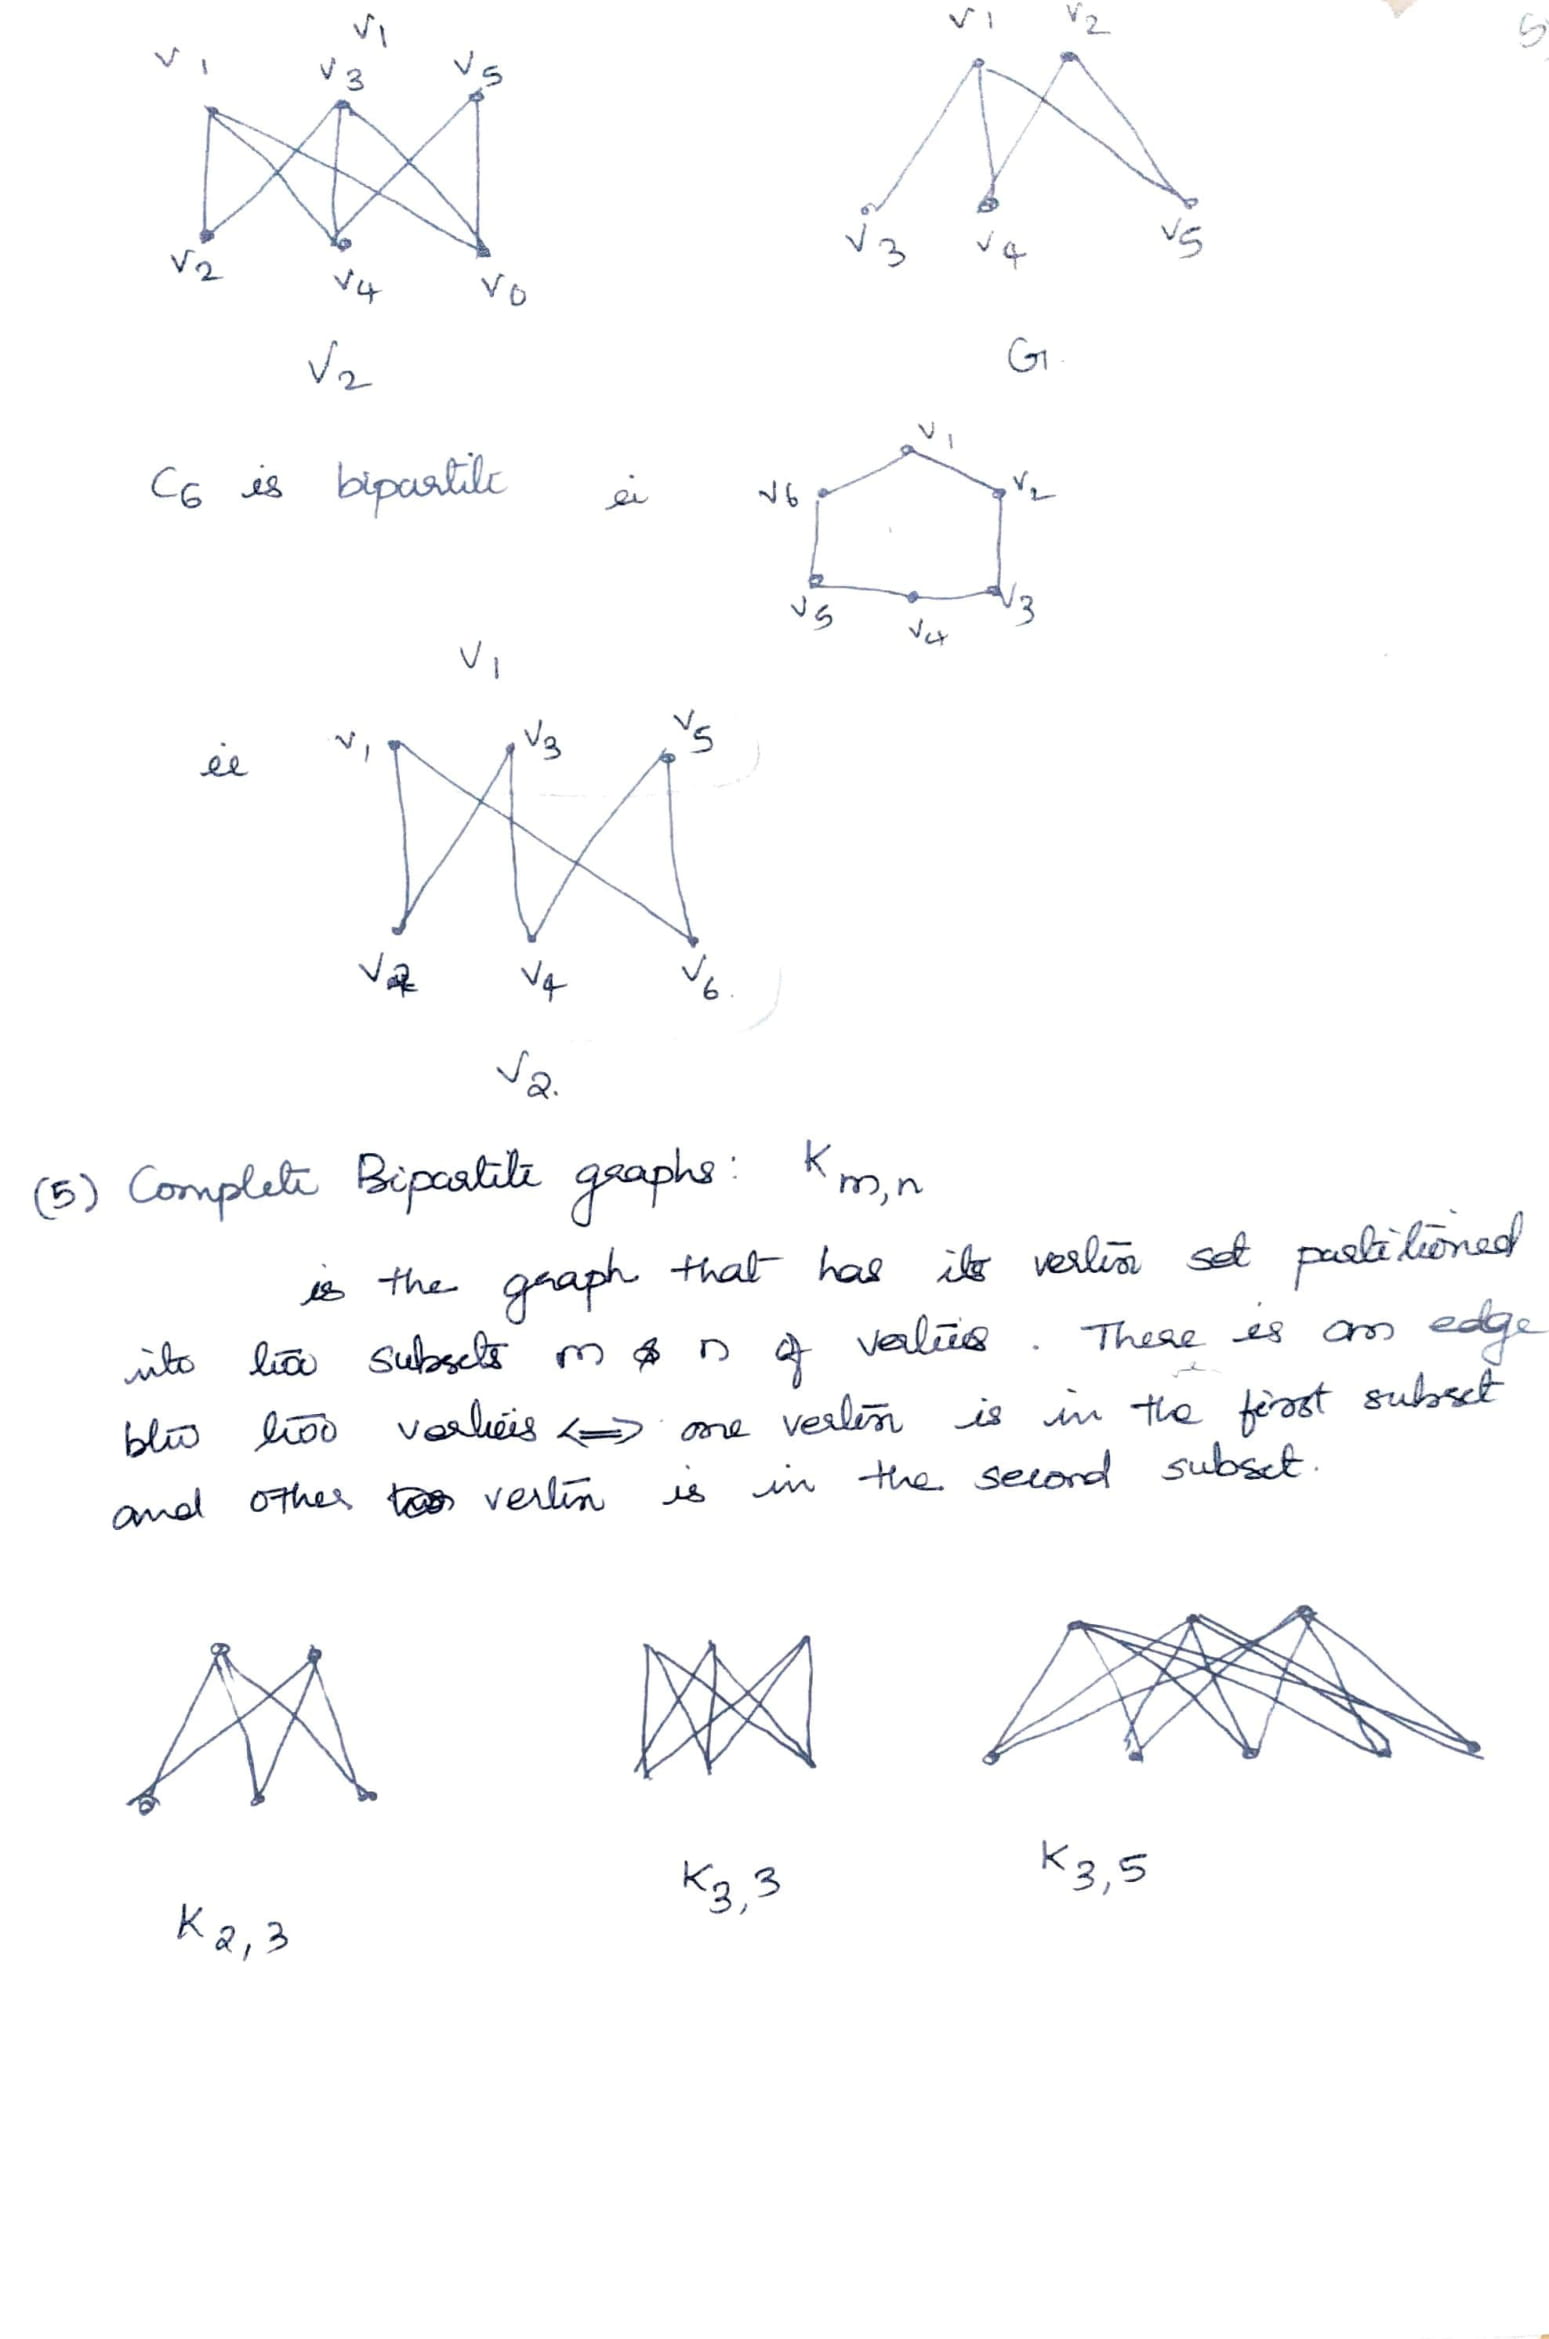 V1
v1 v3 v5
v2 v4 v6
V2
v1 v2
v3 v4 v5
G
5
C6 is bipartite ie
v1
v6 v2
v5 v3
v4
V1
ie v1 v3 v5
v2 v4 v6.
V2.
(5) Complete Bipartite graphs: K m,n
is the graph that has its vertex set partitioned
into two subsets m & n of vertices. There is an edge
btw two vertices <=> one vertex is in the first subset
and other vertex is in the second subset.
K2,3
K3,3
K3,5